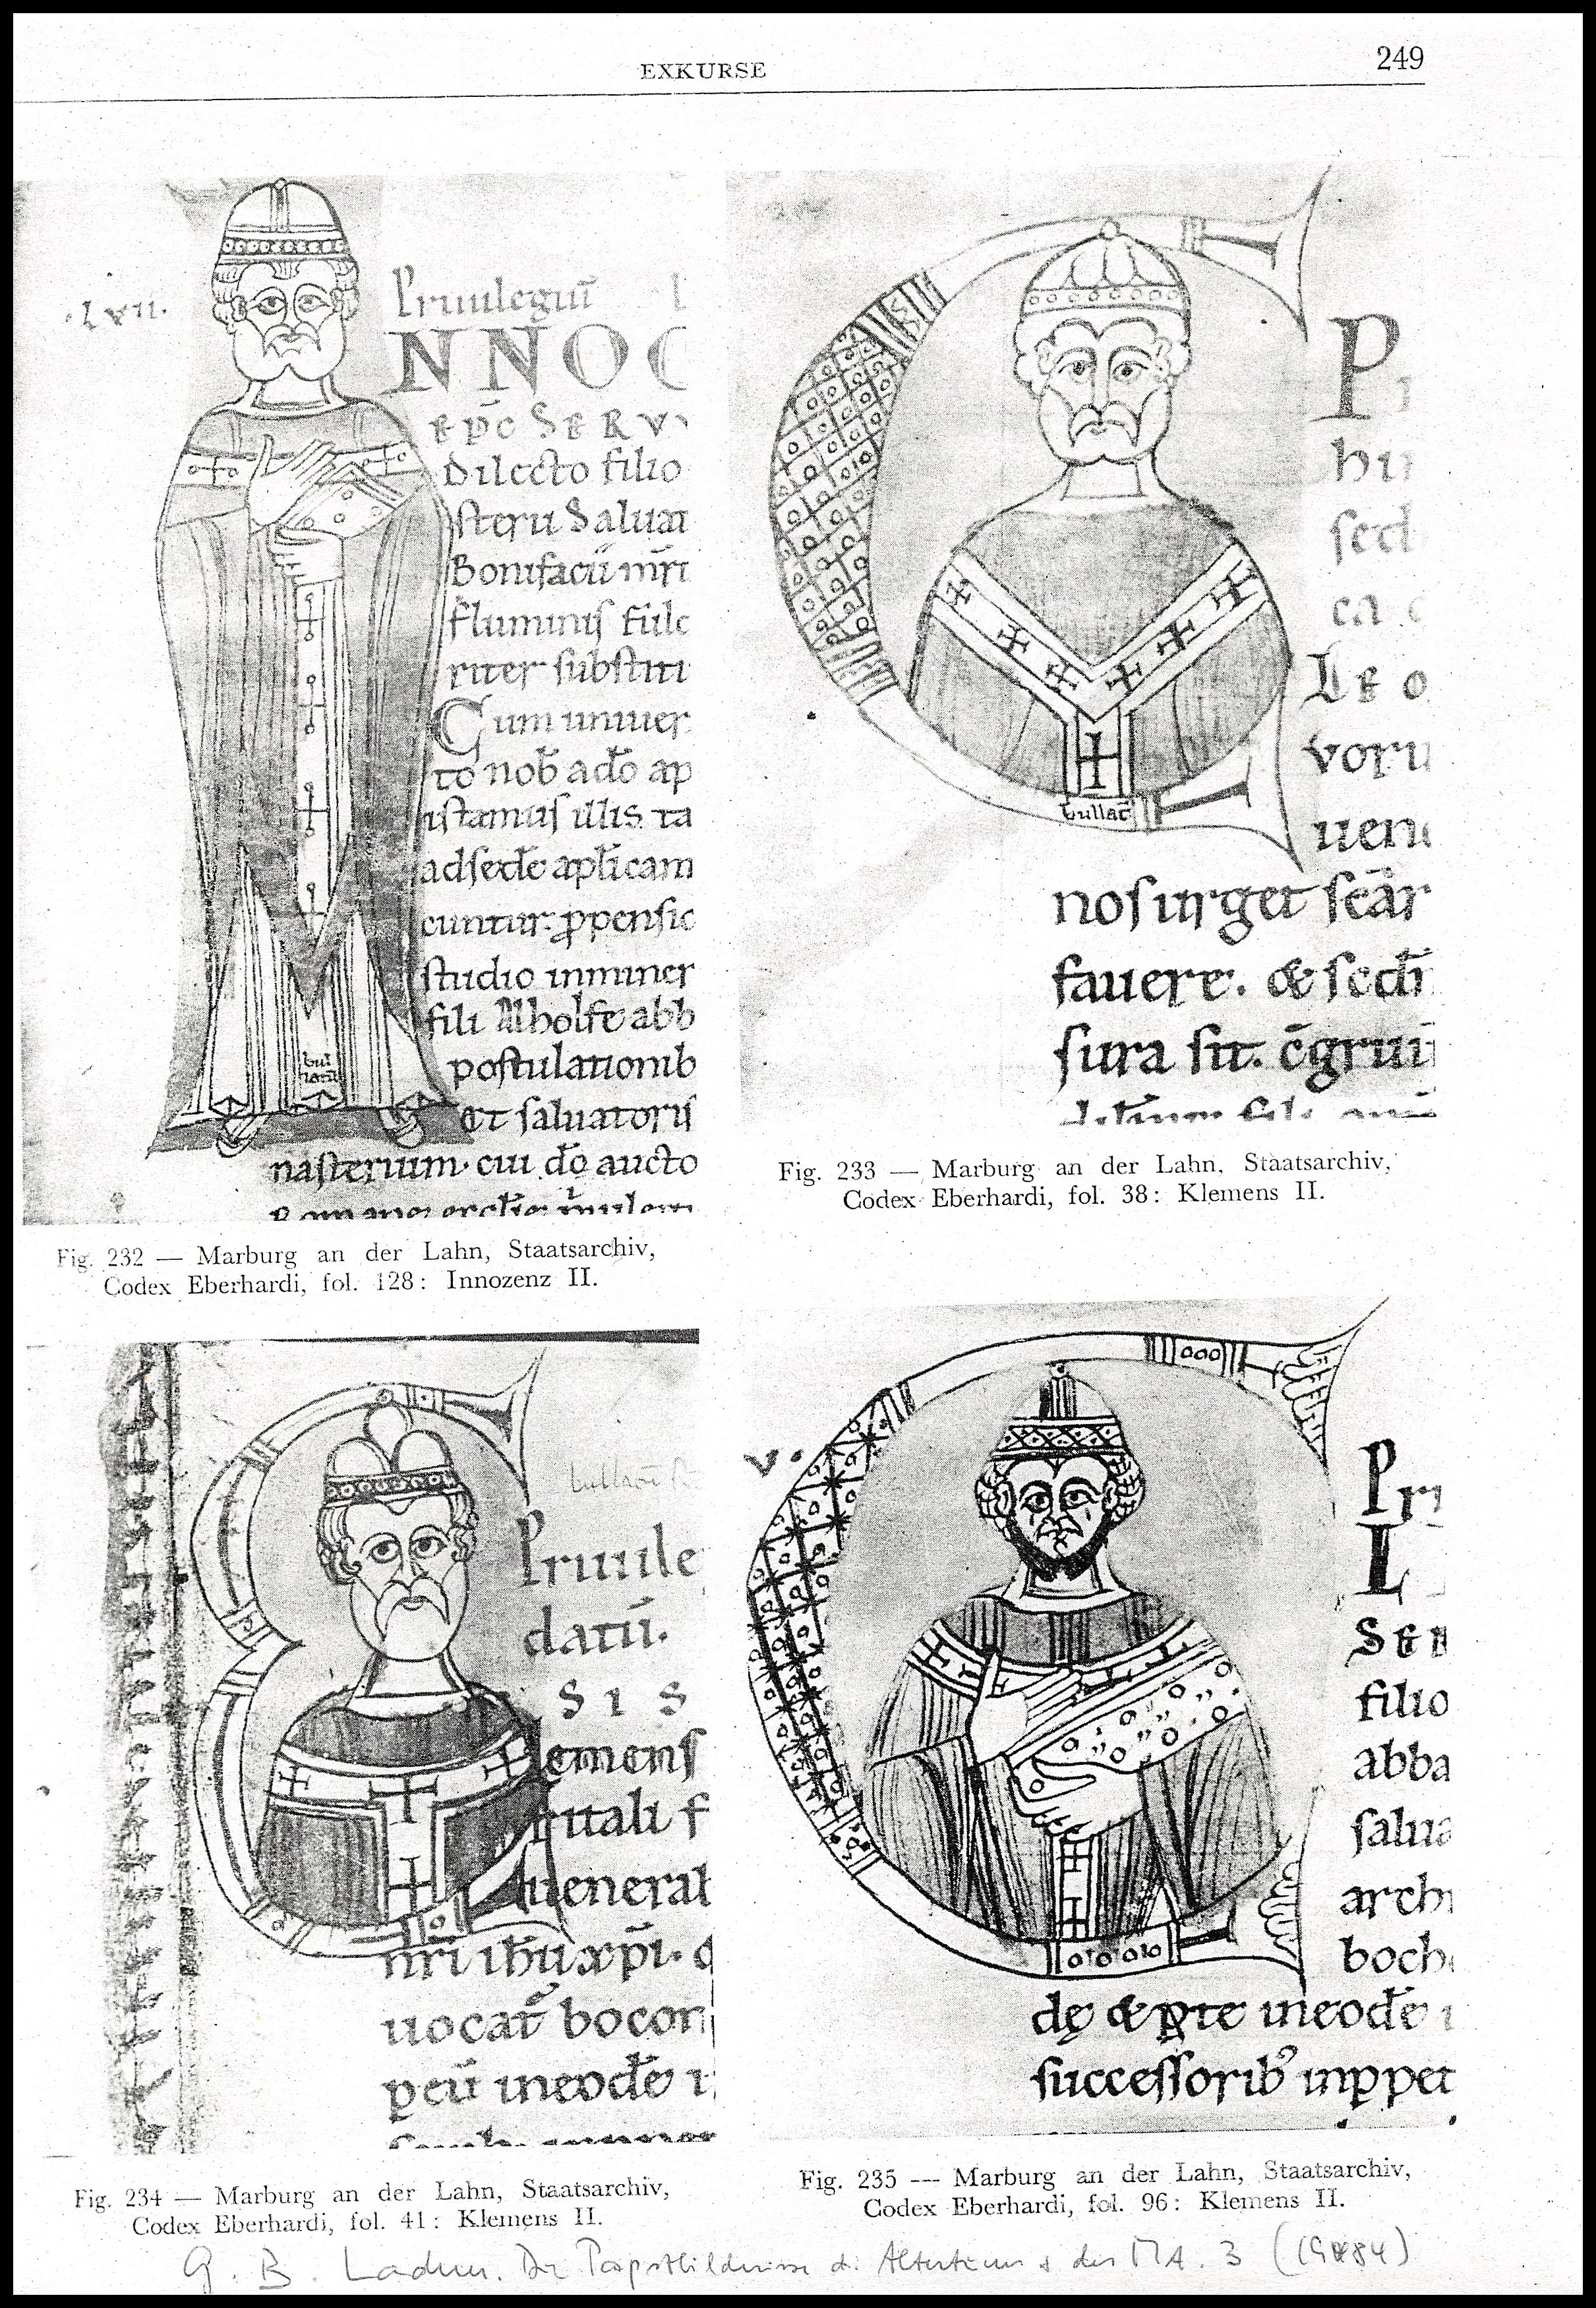 EXKURSE 249
·Lvii.
Priuilegiū
NNOC
epc̄ Serv
Dilecto filio
sterii Saluat
Bonifacii mr̄i
fluminis fulc
riter substiti
Cum uniuer
to nob̄ a dō ap
istamus illis ta
ad sedē aplicam
cuntur. ppensic
studio inminer
fili Alholfe abb
postulationib
et saluatoris
nasterium· cui dō aucto
Fig. 232 — Marburg an der Lahn, Staatsarchiv,
Codex Eberhardi, fol. 128: Innozenz II.
P
hu
sed
ca
Leo
voru
uen
bullat̄
nos urget scār
fauere. & sedi
sura sit. c̄grui
Fig. 233 — Marburg an der Lahn, Staatsarchiv,
Codex Eberhardi, fol. 38: Klemens II.
Priuile
datū.
SIS
emens
ritali f
uenerat
nri ihū xpi·
uocat̄ bocon
peū in eodē
Fig. 234 — Marburg an der Lahn, Staatsarchiv,
Codex Eberhardi, fol. 41: Klemens II.
v·
Pri
L
Ser
filio
abba
salua
archi
boch
dę & p̱te in eodē
successorib' inppet
Fig. 235 — Marburg an der Lahn, Staatsarchiv,
Codex Eberhardi, fol. 96: Klemens II.
G. B. Ladner. Die Papstbildnisse d. Altertums + des MA. 3 (1984)